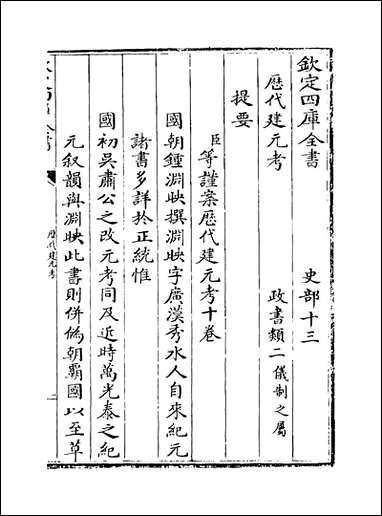 欽定四庫全書 史部十三
歴代建元考 政書類二儀制之屬
提要
臣等謹案歴代建元考十卷
國朝鍾淵映撰淵映字廣漢秀水人自來紀元
諸書多詳於正統惟
國初吳肅公之改元考同及近時萬光泰之紀
元叙韻與淵映此書則併偽朝霸國以至草
歴代建元考